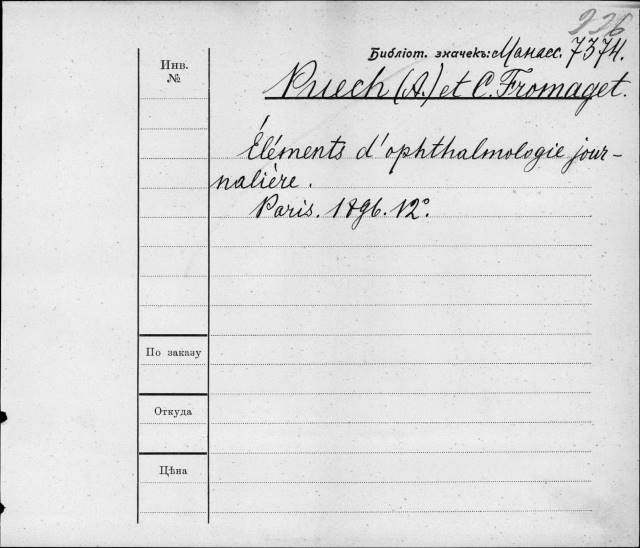 226
Библіот. значекъ: Манасс. 7374.
Инв.
№
Puech (A.) et C. Fromaget.
Éléments d'ophthalmologie jour-
nalière.
Paris. 1896. 12°.
По заказу
Откуда
Цѣна